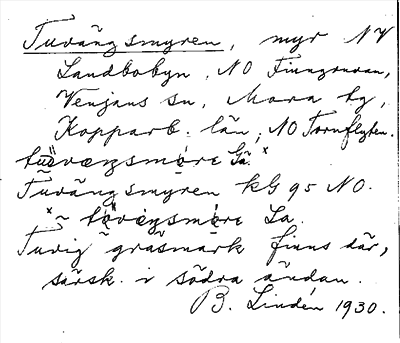 Tuvängsmyren, myr NV
Landbobyn, NO Finngruvan,
Venjans sn, Mora tg,
Kopparb. län, NO Tornflyten.
Tuvängsmyren kG 95 NO.
Tuvig gräsmark finns där,
särsk. i södra ändan.
B. Lindén 1930.